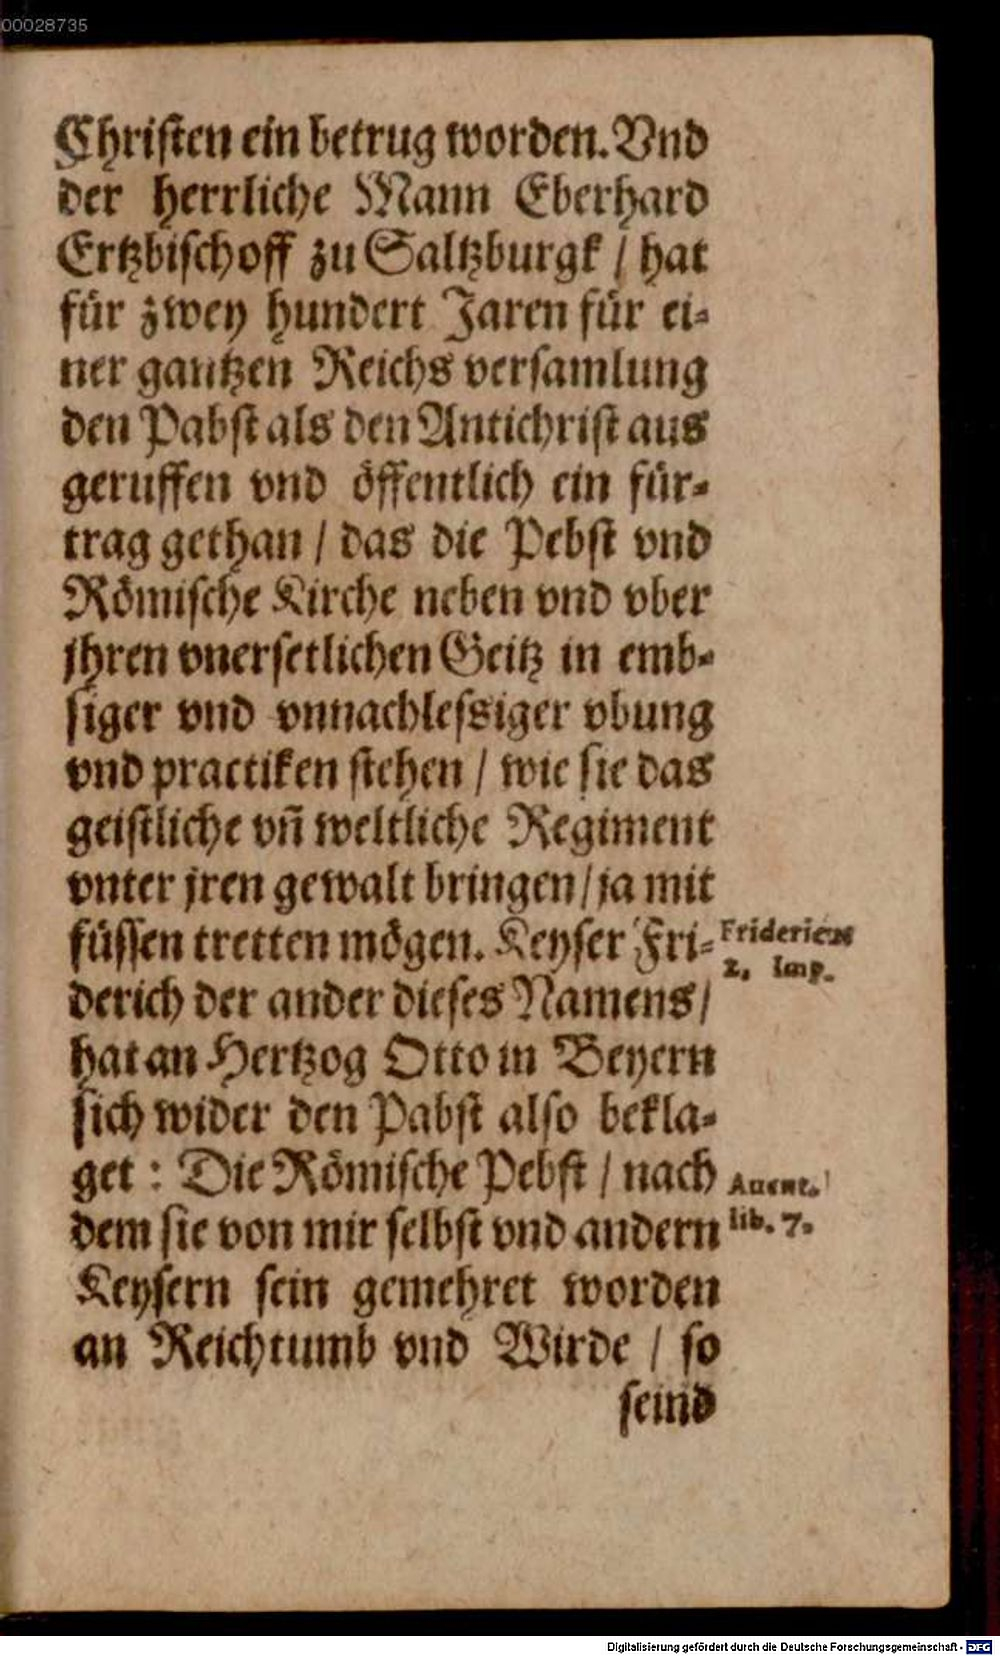 00028735
Christen ein betrug worden. Vnd
der herrliche Mann Eberhard
Ertzbischoff zu Saltzburgk / hat
für zwey hundert Jaren für ei⸗
ner gantzen Reichs versamlung
den Pabst als den Antichrist aus
geruffen vnd öffentlich ein für⸗
trag gethan / das die Pebst vnd
Römische Kirche neben vnd vber
jhren vnersetlichen Geitz in emb⸗
siger vnd vnnachlessiger vbung
vnd practiken stehen / wie sie das
geistliche vn̄ weltliche Regiment
vnter jren gewalt bringen / ja mit
füssen tretten mögen. Keyser Fri⸗
Fridericus
2. Imp.
derich der ander dieses Namens /
hat an Hertzog Otto in Beyern
sich wider den Pabst also bekla⸗
get : Die Römische Pebst / nach
Auent.
lib. 7.
dem sie von mir selbst vnd andern
Keysern sein gemehret worden
an Reichtumb vnd Wirde / so
seind
Digitalisierung gefördert durch die Deutsche Forschungsgemeinschaft - DFG